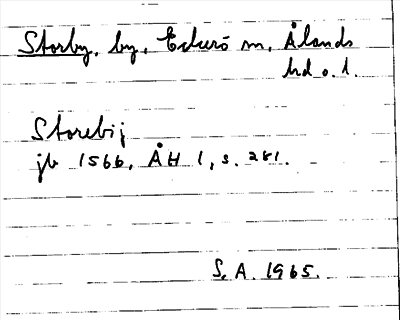 Storby, by, Eckerö sn, Ålands
hd o. l.
Storebij
jb 1566, ÅH 1, s. 281.
S. A. 1965.